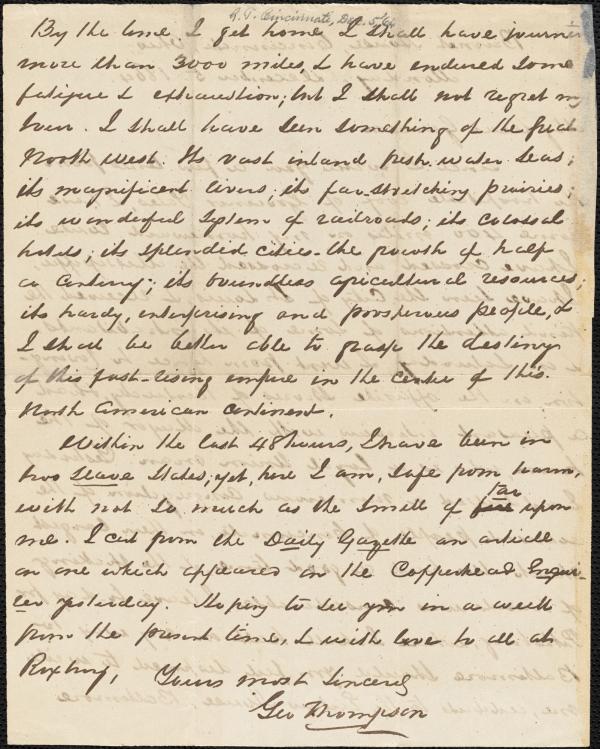 A. T. Cincinnati, Dec. 5/64
By the time I get home I shall have journied
more than 3000 miles, & have endured some
fatigue & exhaustion; but I shall not regret my
tour. I shall have seen something of the great
North west. Its vast inland fresh water seas;
its magnificent rivers; its far-stretching prairies;
its wonderful system of railroads; its colossal
hotels; its splendid cities - the growth of half
a century; its boundless agricultural resources;
its hardy, enterprising and prosperous people, &
I shall be better able to grasp the destiny
of this fast-rising empire in the centre of this
North American continent.
Within the last 48 hours, I have been in
two Slave States; yet, here I am, safe from harm,
with not so much as the smell of tar upon
me. I cut from the Daily Gazette an article
on one which appeared in the Copperhead Enquir-
er yesterday. Hoping to see you in a week
from the present time, I with love to all at
Roxbury,
Yours most sincerely
Geo Thompson